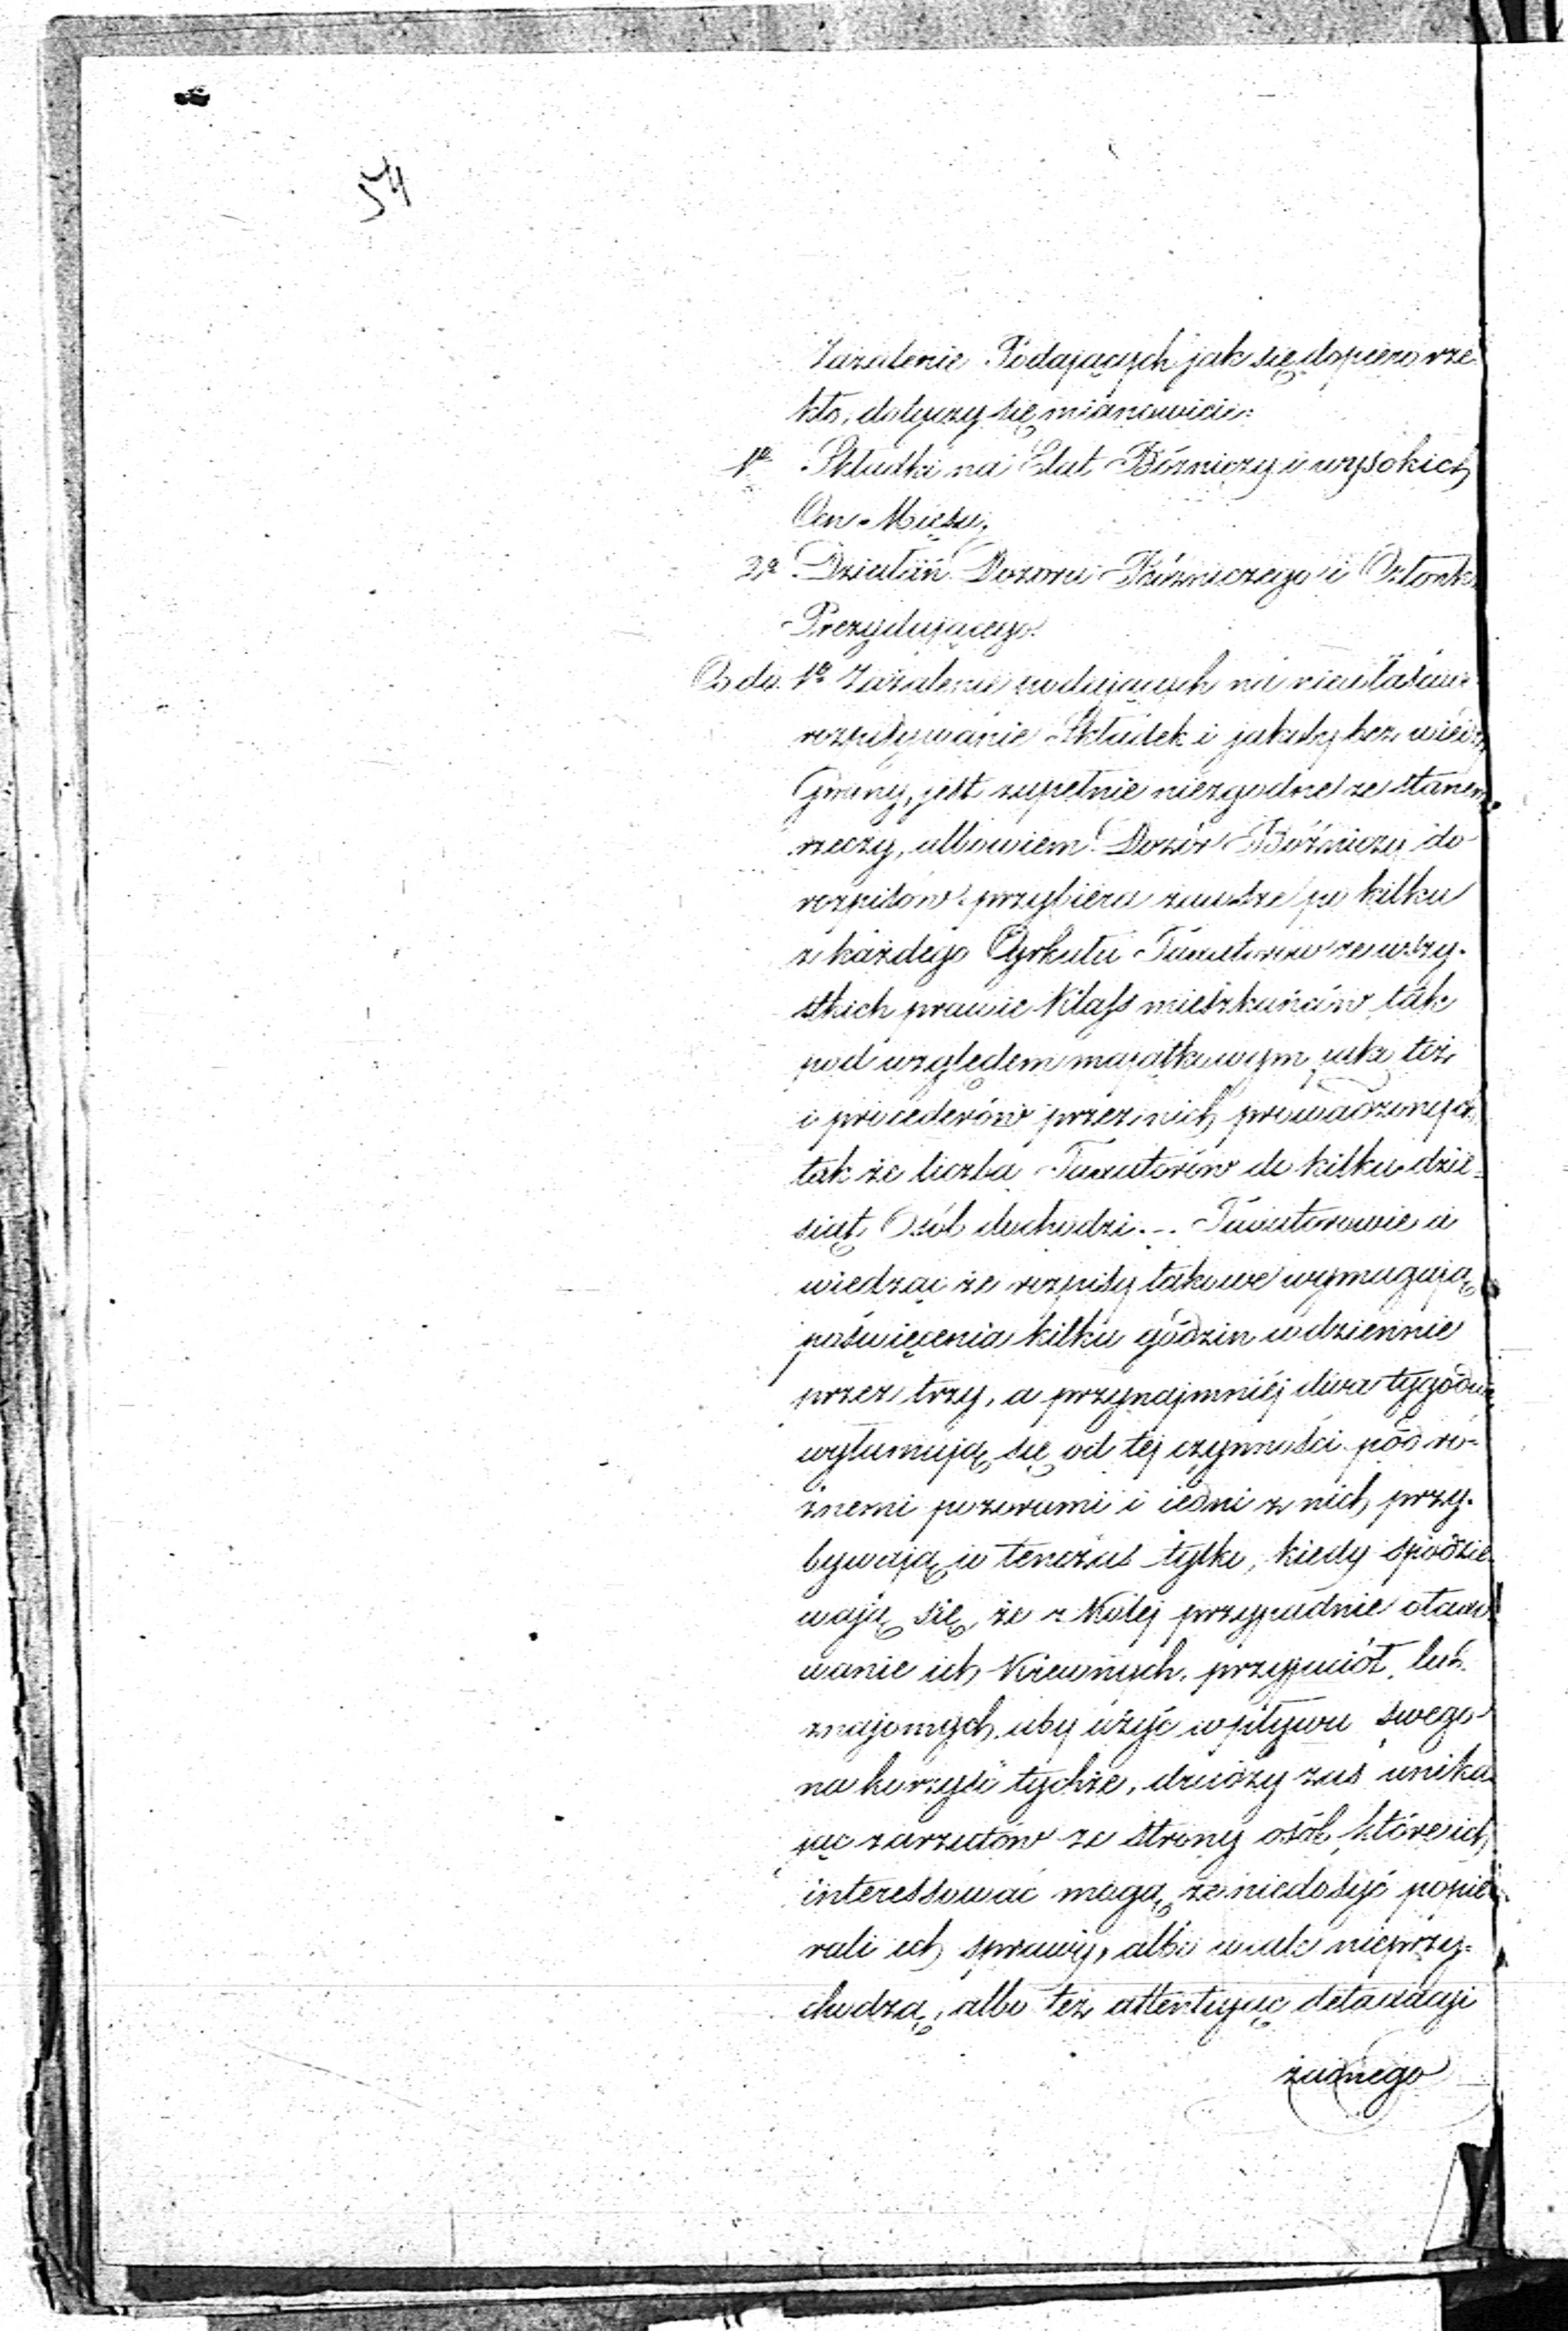 54
Zażalenie Podających jak się dopiero rze-
kło, dotyczy się mianowicie:
1o Składki na Etat Bóżniczy i wysokich
Cen Mięsa,
2o Działań Dozoru Bóżniczego i Członka
Prezydującego.
Co do 1o Zażalenie podających na niewłaściwe
rozpisywanie Składek i jakoby bez wiedzy
Gminy, jest zupełnie niezgodne ze stanem
rzeczy, albowiem Dozór Bóżniczy do
rozpisów przybiera zawsze po kilku
z każdego Cyrkułu Taxatorów ze wszy-
stkich prawie Klass mieszkańców tak
pod względem majątkowym jako też
i procederów przez nich prowadzonych
tak że liczba Taxatorów do kilku dzie-
siąt Osób dochodzi. – Taxatorowie a
wiedząc że rozpisy takowe wymagają
poświęcenia kilku godzin codziennie
przez trzy, a przynajmniéj dwa tygodnie
wyłamują się od tej czynności pod ró-
żnemi pozorami i iedni z nich przy-
bywają w tenczas tylko, kiedy spodzie-
wają się że z Kolej przypadnie otaxo-
wanie ich Krewnych, przyjaciół, lub
znajomych, aby użyć wpływu swego
na korzyść tychże, drudzy zaś unika-
jąc zarzutów ze strony osób, które ich
interessować mogą, że niedosyć popie-
rali ich sprawy, albo wcale nieprzy-
chodzą, albo też attentując
żadnego